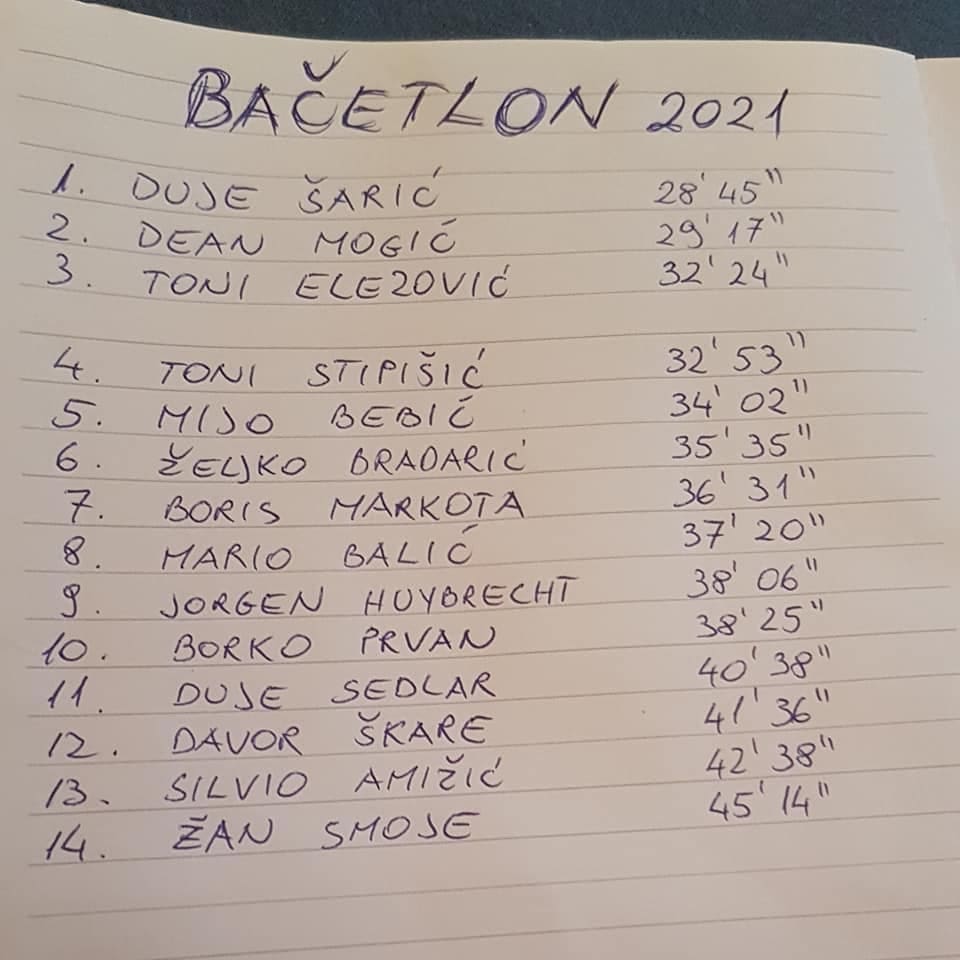 BAČETLON 2021
1. DUJE ŠARIĆ 28' 45"
2. DEAN MOGIĆ 29' 17"
3. TONI ELEZOVIĆ 32' 24"
4. TONI STIPIŠIĆ 32' 53"
5. MIJO BEBIĆ 34' 02"
6. ŽELJKO BRADARIĆ 35' 35"
7. BORIS MARKOTA 36' 31"
8. MARIO BALIĆ 37' 20"
9. JORGEN HUYBRECHT 38' 06"
10. BORKO PRVAN 38' 25"
11. DUJE SEDLAR 40' 38"
12. DAVOR ŠKARE 41' 36"
13. SILVIO AMIŽIĆ 42' 38"
14. ŽAN SMOJE 45' 14"